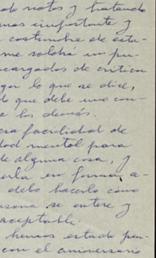 do notas y tratando
mos importante y
costumbre de esta
me soldré un pu
cargados de critica
por lo que se dice,
lo que debe uno con
a los demás.
ra facultad de
dad mental para
de alguna cosa, y
en forma a
debo hacerlo como
sona se entere y
aceptable.
hemos estado pen
con el aniversario